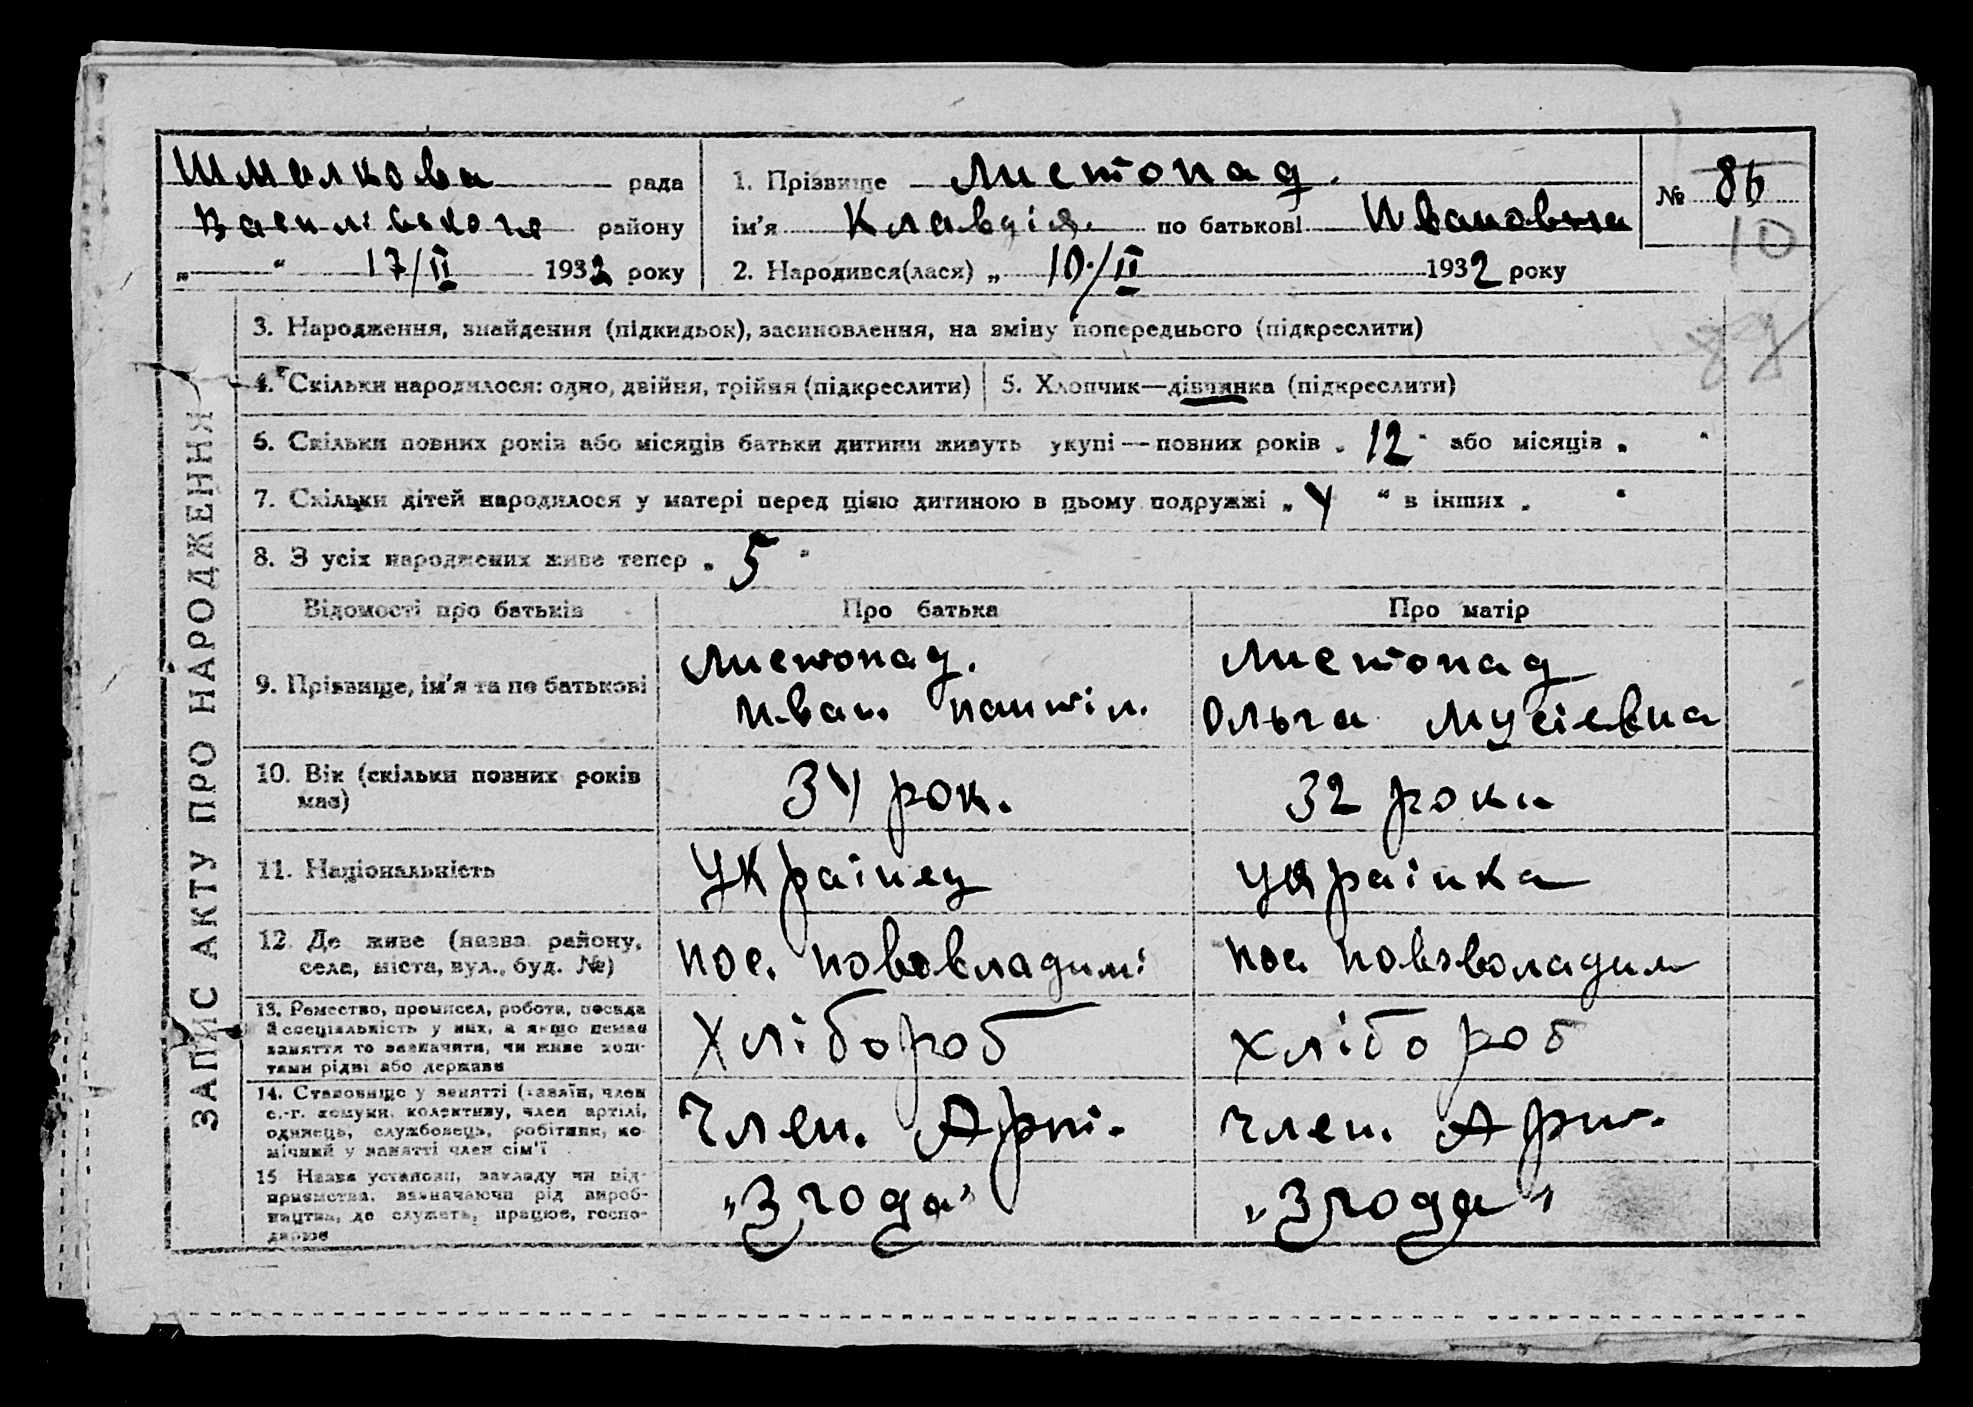 ЗАПИС АКТУ ПРО НАРОДЖЕННЯ
Шмалкова рада
Василівського району
„ “ 17/II 1932 року
1. Прізвище Листопад.
ім'я Клавдія по батькові Ивановна
2. Народився(лася) „ 10/II 1932 року
№ 86
10
89
3. Народження, знайдення (підкидьок), засиновлення, на зміну попереднього (підкреслити)
4. Скільки народилося: одно, двійня, трійня (підкреслити)
5. Хлопчик—дівчинка (підкреслити)
6. Скільки повних років або місяців батьки дитини живуть укупі — повних років „ 12 “ або місяців „ “
7. Скільки дітей народилося у матері перед цією дитиною в цьому подружжі „ 4 “ в інших „ “
8. З усіх народжених живе тепер „ 5 “
Відомості про батьків Про батька Про матір
9. Прізвище, ім'я та по батькові
Листопад.
Иван.
Листопад
Ольга Мусіевна
10. Вік (скільки повних років
має)
34 рок.
32 роки
11. Національність
Українец
Українка
12. Де живе (назва району,
села, міста, вул., буд. №)
пос. нововладим:
пос. нововоладим
13. Ремество, промисел, робота, посада
й спеціальність у них, а якщо немає
заняття то зазначити, чи живе кош-
тами рідні або держави
Хлібороб
хлібороб
14. Становище у занятті (хазяїн, член
с.-г. комуни, колективу, член артілі,
одинець, службовець, робітник, по-
мічний у занятті член сім'ї
Член. Арт.
член. Арт.
15 Назва установи, закладу чи під-
приємства, зазначаючи рід вироб-
ництва, де служить, працює, госпо-
дарює
„Згода“
„Згода“